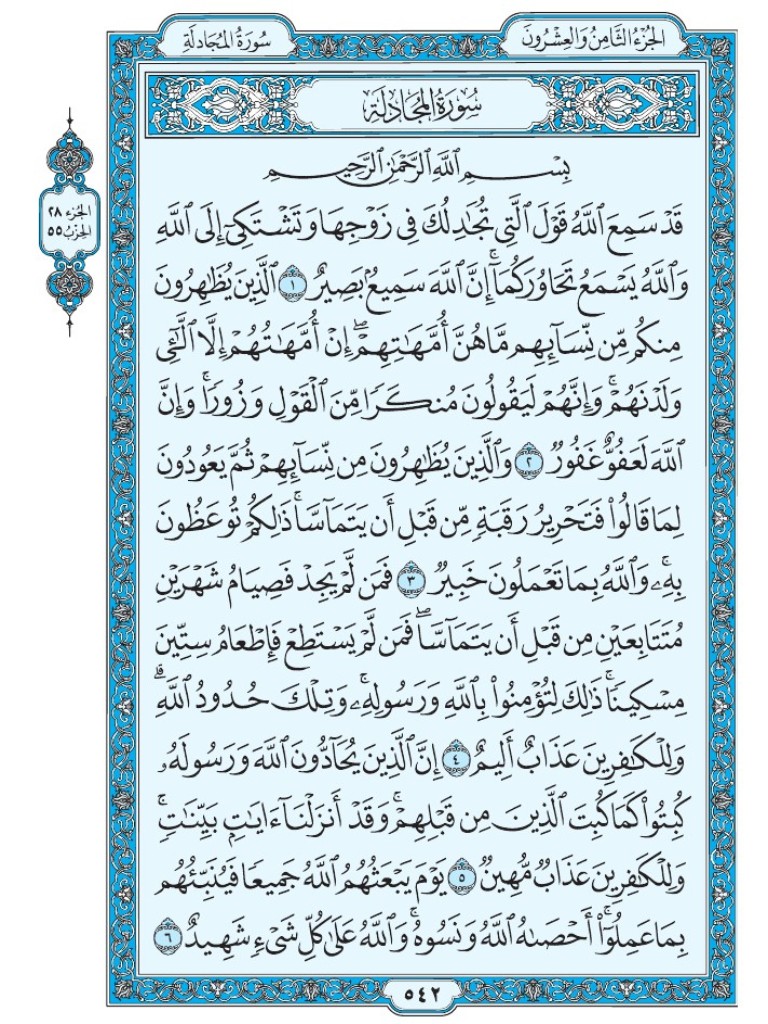 الجُزْءُ الثَّامِنُ وَالعِشْرُونَ
سُورَةُ المُجَادلَةِ
سُورَةُ المُجَادلَةِ
الجُزْء ٢٨
الحِزْبُ ٥٥
بِسْمِ ٱللَّهِ ٱلرَّحْمَٰنِ ٱلرَّحِيمِ
قَدْ سَمِعَ ٱللَّهُ قَوْلَ ٱلَّتِي تُجَٰدِلُكَ فِي زَوْجِهَا وَتَشْتَكِيٓ إِلَى ٱللَّهِ
وَٱللَّهُ يَسْمَعُ تَحَاوُرَكُمَآۚ إِنَّ ٱللَّهَ سَمِيعُۢ بَصِيرٌ ١ ٱلَّذِينَ يُظَٰهِرُونَ
مِنكُم مِّن نِّسَآئِهِم مَّا هُنَّ أُمَّهَٰتِهِمْۖ إِنْ أُمَّهَٰتُهُمْ إِلَّا ٱلَّٰٓـِٔي
وَلَدْنَهُمْۚ وَإِنَّهُمْ لَيَقُولُونَ مُنكَرًا مِّنَ ٱلْقَوْلِ وَزُورًاۚ وَإِنَّ
ٱللَّهَ لَعَفُوٌّ غَفُورٌ ٢ وَٱلَّذِينَ يُظَٰهِرُونَ مِن نِّسَآئِهِمْ ثُمَّ يَعُودُونَ
لِمَا قَالُوا۟ فَتَحْرِيرُ رَقَبَةٍ مِّن قَبْلِ أَن يَتَمَآسَّاۚ ذَٰلِكُمْ تُوعَظُونَ
بِهِۦۚ وَٱللَّهُ بِمَا تَعْمَلُونَ خَبِيرٌ ٣ فَمَن لَّمْ يَجِدْ فَصِيَامُ شَهْرَيْنِ
مُتَتَابِعَيْنِ مِن قَبْلِ أَن يَتَمَآسَّاۖ فَمَن لَّمْ يَسْتَطِعْ فَإِطْعَامُ سِتِّينَ
مِسْكِينًاۚ ذَٰلِكَ لِتُؤْمِنُوا۟ بِٱللَّهِ وَرَسُولِهِۦۚ وَتِلْكَ حُدُودُ ٱللَّهِۗ
وَلِلْكَٰفِرِينَ عَذَابٌ أَلِيمٌ ٤ إِنَّ ٱلَّذِينَ يُحَآدُّونَ ٱللَّهَ وَرَسُولَهُۥ
كُبِتُوا۟ كَمَا كُبِتَ ٱلَّذِينَ مِن قَبْلِهِمْۚ وَقَدْ أَنزَلْنَآ ءَايَٰتٍۭ بَيِّنَٰتٍۚ
وَلِلْكَٰفِرِينَ عَذَابٌ مُّهِينٌ ٥ يَوْمَ يَبْعَثُهُمُ ٱللَّهُ جَمِيعًا فَيُنَبِّئُهُم
بِمَا عَمِلُوٓا۟ۚ أَحْصَىٰهُ ٱللَّهُ وَنَسُوهُۚ وَٱللَّهُ عَلَىٰ كُلِّ شَيْءٍ شَهِيدٌ ٦
٥٤٢